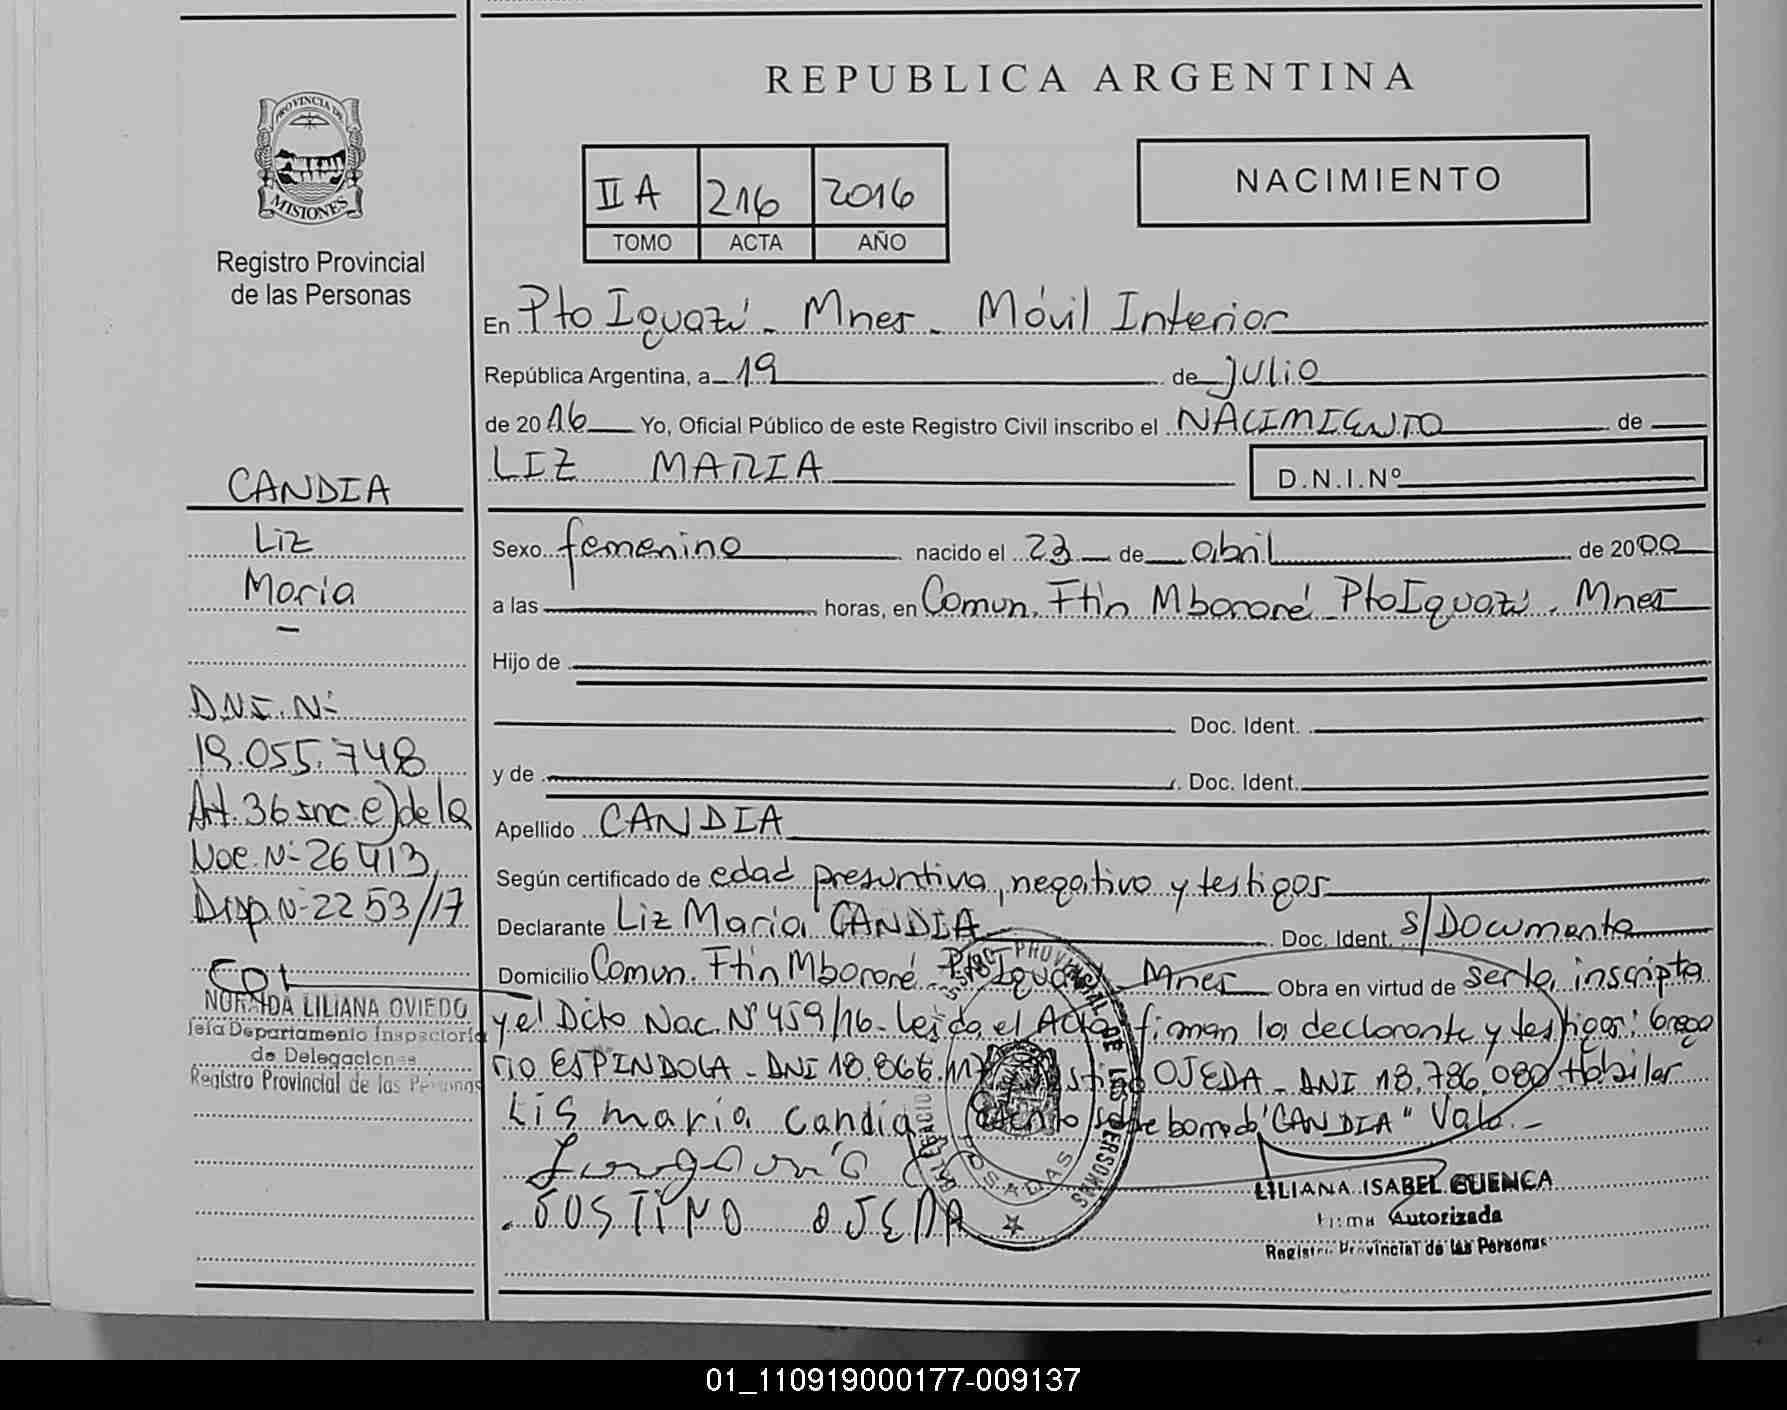 REPUBLICA ARGENTINA
PROVINCIA DE
MISIONES
Registro Provincial
de las Personas
II A 216 2016
TOMO ACTA AÑO
NACIMIENTO
En Pto Iguazú - Mnes - Móvil Interior
República Argentina, a 19 de julio
de 2016 Yo, Oficial Público de este Registro Civil inscribo el NACIMIENTO de
LIZ MARIA D.N.I.Nº
CANDIA
Liz
Maria
-
D.N.I. Nº
19.055.748
Art. 36 inc e) de la
Noe. Nº 26413,
Disp Nº 2253/17
NORAIDA LILIANA OVIEDO
Jefa Departamento Inspectoria
de Delegaciones
Registro Provincial de las Personas
Sexo femenino nacido el 23 de abril de 2000
a las horas, en Comun. Ftín Mbororé - Pto Iguazú. Mnes
Hijo de
Doc. Ident.
y de Doc. Ident.
Apellido CANDIA
Según certificado de edad presuntiva, negativo y testigos
Declarante Liz Maria CANDIA Doc. Ident. s/Documento
Domicilio Comun. Ftín Mbororé - Pto Iguazú - Mnes Obra en virtud de ser la inscripta
y el Dcto Nac. Nº 459/16 - Leída el Acta firman la declarante y testigos: Grego
rio ESPINDOLA - DNI 18.866. OJEDA - DNI 18.786.080 Hábiles
Lis maria candia sobre borrado "CANDIA" Vale.-
JUSTINO OJEDA
POSADAS
LILIANA ISABEL CUENCA
Firma Autorizada
Registro Provincial de las Personas
01_110919000177-009137